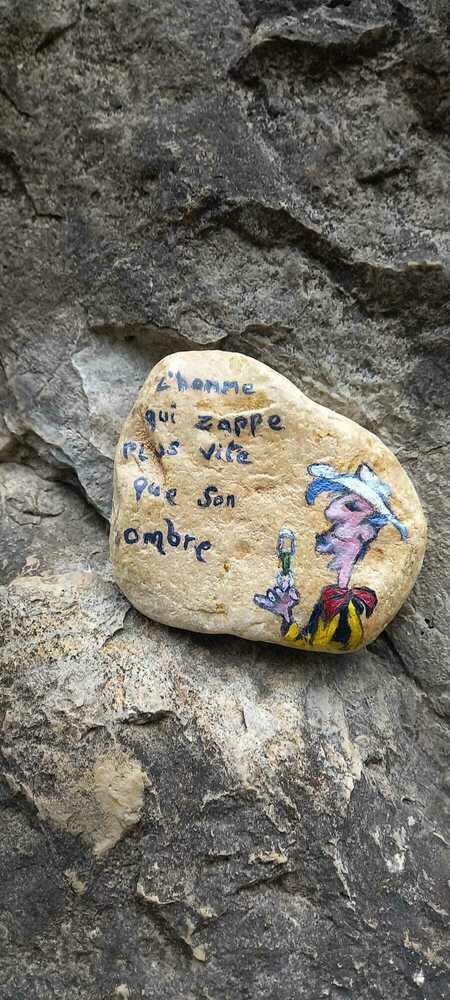 L'homme
qui zappe
plus vite
que son
ombre